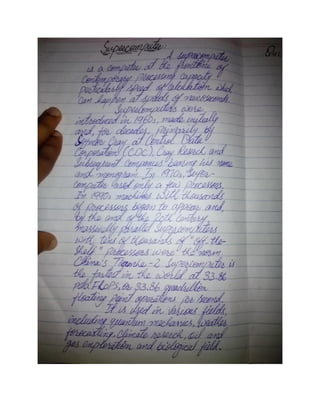 Supercomputer
A supercomputer
is a computer at the frontline of
contemporary processing capacity
particularly speed of calculation which
can happen at speeds of nanoseconds.
Supercomputers were
introduced in 1960s, made initially
and, for decades, primarily by
Seymour Cray at Control Data
Corporation (CDC), Cray Research and
subsequent companies bearing his name
and monogram. In 1970s, Super-
computer used only a few processors.
In 1990s machines with thousands
of processors began to appear and
by the end of the 20th century,
massively parallel supercomputers
with tens of thousands of "off-the-
shelf" processors were the norm.
China's Tianhe-2 Supercomputer is
the fastest in the world at 33.86
peta FLOPS, or 33.86 quadrillion
floating point operations per second.
It is used in various fields,
including quantum mechanics, weather
forecasting, climate research, oil and
gas exploration and biological field.